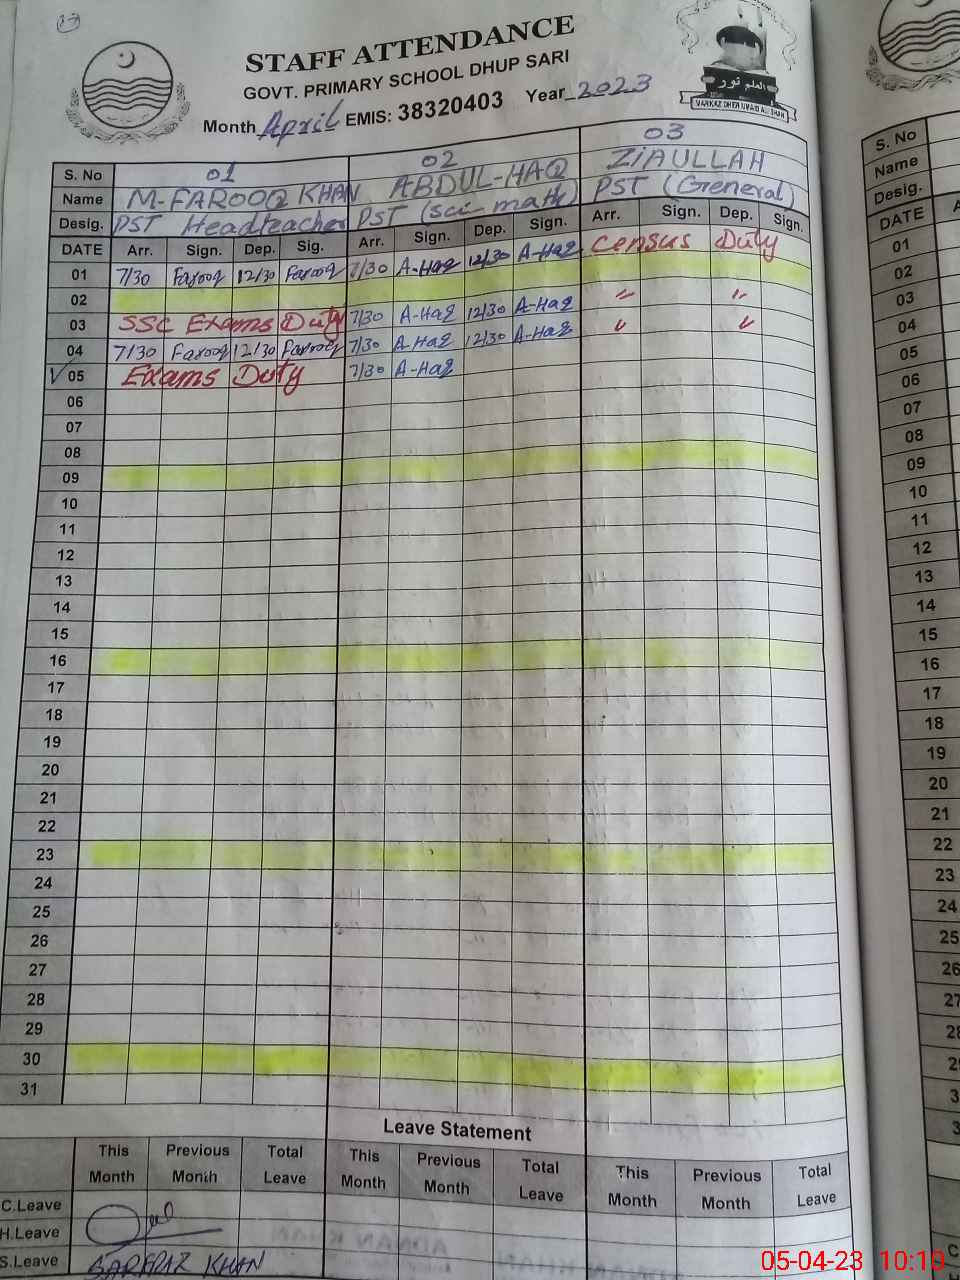 STAFF ATTENDANCE
GOVT. PRIMARY SCHOOL DHUP SARI
Month April EMIS: 38320403 Year 2023
العلم نور
S. No 01 02 03
Name M-FAROOQ KHAN ABDUL-HAQ ZIAULLAH
Desig. PST Headteacher PST (sci-math) PST (General)
DATE Arr. Sign. Dep. Sig. Arr. Sign. Dep. Sign. Arr. Sign. Dep. Sign.
01 7/30 Farooq 12/30 Farooq 7/30 A-Haq 12/30 A-Haq Census Duty
02
03 SSC Exams Duty 7/30 A-Haq 12/30 A-Haq " "
04 7/30 Farooq 12/30 Farooq 7/30 A-Haq 12/30 A-Haq " "
05 Exams Duty 7/30 A-Haq
06
07
08
09
10
11
12
13
14
15
16
17
18
19
20
21
22
23
24
25
26
27
28
29
30
31
Leave Statement
This Month Previous Month Total Leave This Month Previous Month Total Leave This Month Previous Month Total Leave
C.Leave
H.Leave
S.Leave SARFRAZ KHAN
S. No
Name
Desig.
DATE
01
02
03
04
05
06
07
08
09
10
11
12
13
14
15
16
17
18
19
20
21
22
23
24
25
26
27
28
05-04-23 10:10